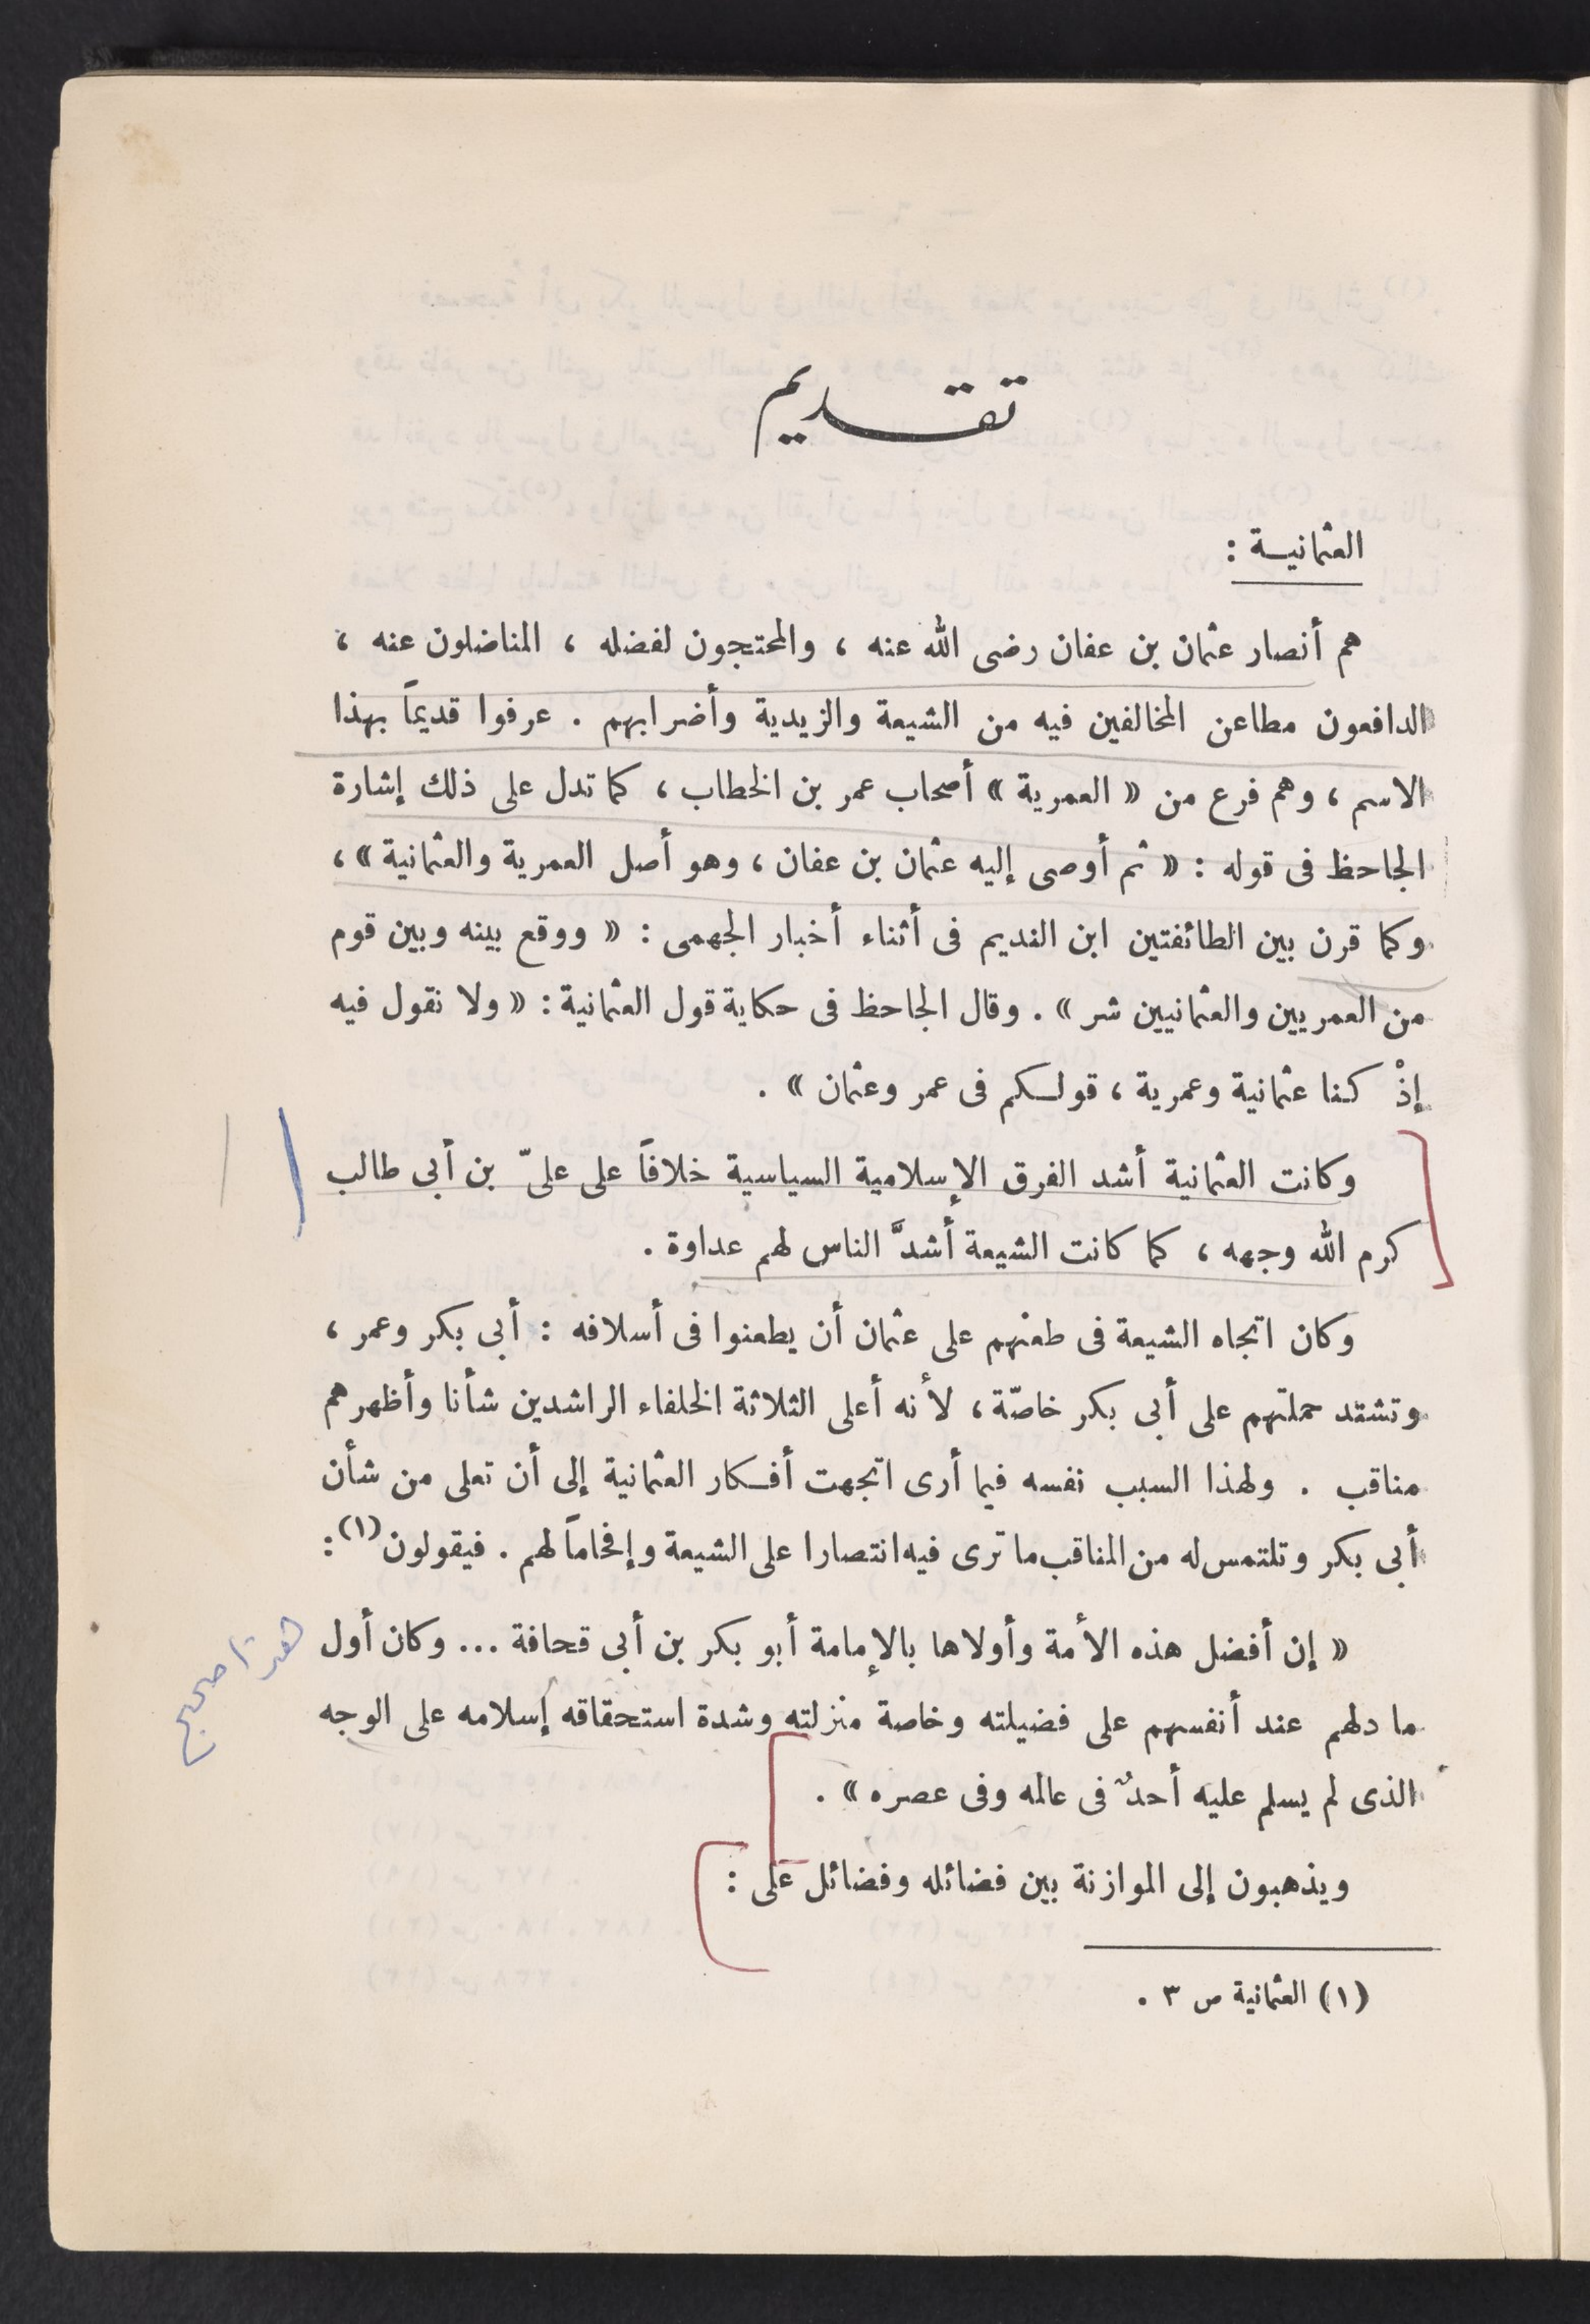 تقديم
العثمانية :
هم أنصار عثمان بن عفان رضى الله عنه ، والمحتجون لفضله ، المناضلون عنه ،
الدافعون مطاعن المخالفين فيه من الشيعة والزيدية وأضرابهم . عرفوا قديماً بهذا
الاسم ، وهم فرع من « العمرية » أصحاب عمر بن الخطاب ، كما تدل على ذلك إشارة
الجاحظ فى قوله : « ثم أوصى إليه عثمان بن عفان ، وهو أصل العمرية والعثمانية » ،
وكما قرن بين الطائفتين ابن النديم فى أثناء أخبار الجهمى : « ووقع بينه وبين قوم
من العمريين والعثمانيين شر » . وقال الجاحظ فى حكاية قول العثمانية : « ولا نقول فيه
إذْ كنا عثمانية وعمرية ، قولكم فى عمر وعثمان » .
وكانت العثمانية أشد الفرق الإسلامية السياسية خلافاً على علىّ بن أبى طالب
كرم الله وجهه ، كما كانت الشيعة أشدَّ الناس لهم عداوة .
وكان اتجاه الشيعة فى طعنهم على عثمان أن يطعنوا فى أسلافه : أبى بكر وعمر ،
وتشتد حملتهم على أبى بكر خاصّة ، لأنه أعلى الثلاثة الخلفاء الراشدين شأنا وأظهرهم
مناقب . ولهذا السبب نفسه فيما أرى اتجهت أفكار العثمانية إلى أن تعلى من شأن
أبى بكر وتلتمس له من المناقب ما ترى فيه انتصارا على الشيعة وإفحاماً لهم . فيقولون (١) :
« إن أفضل هذه الأمة وأولاها بالإمامة أبو بكر بن أبى قحافة ... وكان أول
ما دلهم عند أنفسهم على فضيلته وخاصة منزلته وشدة استحقاقه إسلامه على الوجه
الذى لم يسلم عليه أحدٌ فى عالمه وفى عصره » .
ويذهبون إلى الموازنة بين فضائله وفضائل على :
(١) العثمانية ص ٣ .
هذا صحيح